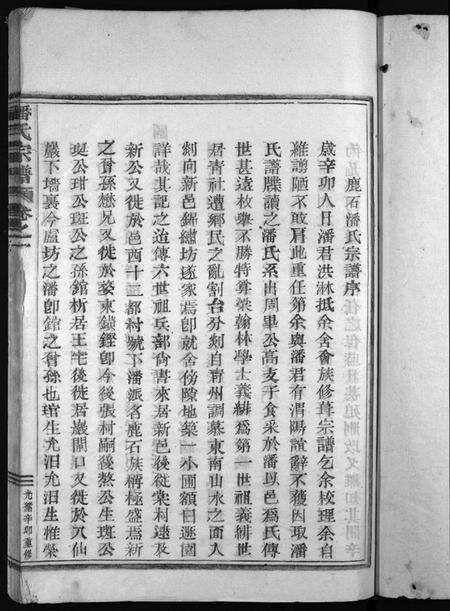 鹿石潘氏宗譜序
歲辛卯人日潘君洪淋抵余舍會族修葺宗譜乞余校理余自
維謭陋不敢肩此重任第余與潘君有渭陽誼辭不獲因取潘
氏譜牒讀之潘氏系出周畢公高支子食采於潘以邑爲氏傳
世甚遠枚舉不勝特尊梁翰林學士義緋爲第一世祖義緋世
居青社遭鄉民之亂割台分刻自青州調幕東南山水之而人
剡向新邑錦繡坊遂家焉卽就舍傍隙地築一小圃額曰逕園
詳哉其記之迨傳六世祖兵部尚書來居新邑後從樂村遠及
新公又徙於邑西十三都村號下潘派名鹿石族稱極盛焉新
之曾孫懋兄又徙於婺東鎮鏗卽今後張村嗣後熬公生斑公
琪公玵公斑公之孫舘枋居王宅後徙居巖開口又徙於八仙
巖下墻裏今盧坊之潘卽舘之曾孫也琯生允汨允汨生惟榮
潘氏宗譜
卷之一
光緒辛卯重修